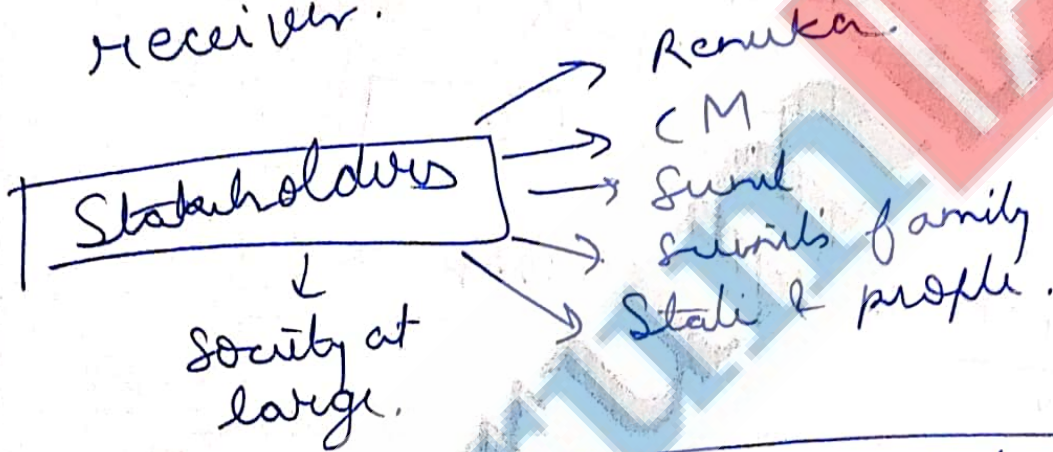 receiver.
Stakeholders
Renuka.
CM
Sunil
Sunil's family
State & people.
Society at
large.